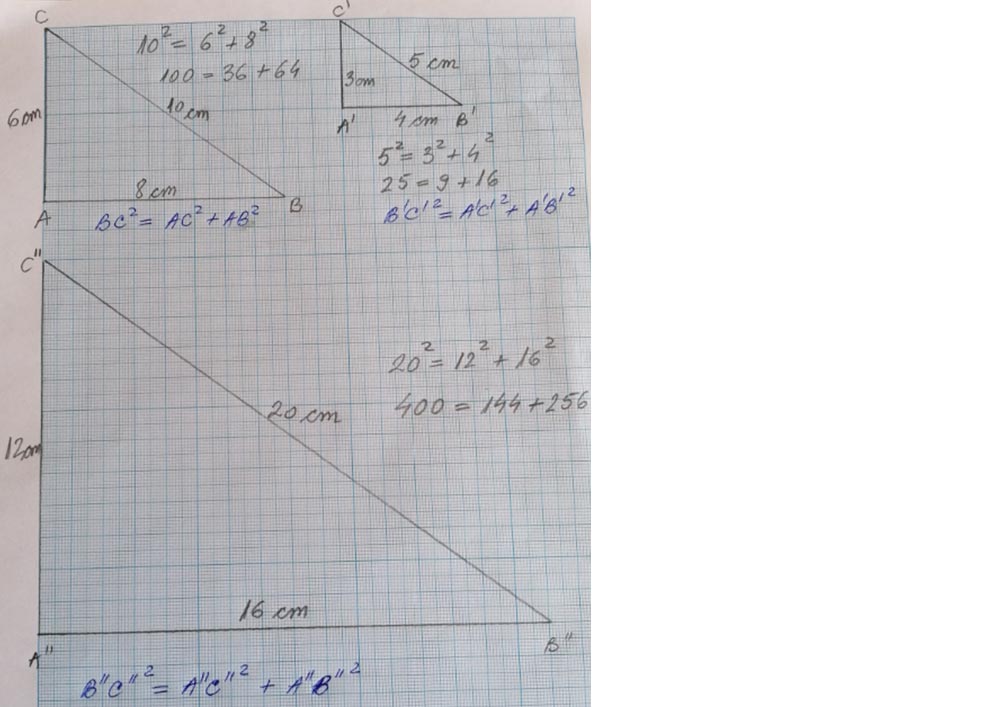 C
10² = 6² + 8²
100 = 36 + 64
6cm
10 cm
8 cm
A
B
BC² = AC² + AB²
C'
5 cm
3cm
A'
4 cm
B'
5² = 3² + 4²
25 = 9 + 16
B'C'² = A'C'² + A'B'²
C"
20² = 12² + 16²
400 = 144 + 256
20 cm
12cm
16 cm
A"
B"
B"C"² = A"C"² + A"B"²